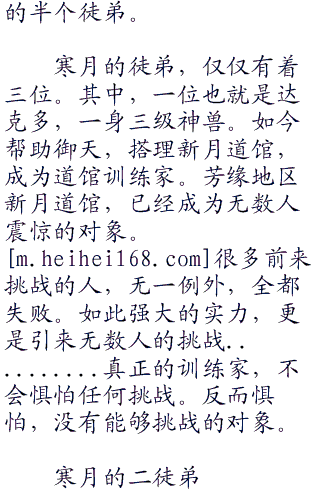 的半个徒弟。
寒月的徒弟，仅仅有着
三位。其中，一位也就是达
克多，一身三级神兽。如今
帮助御天，搭理新月道馆，
成为道馆训练家。芳缘地区
新月道馆，已经成为无数人
震惊的对象。
[m.heihei168.com]很多前来
挑战的人，无一例外，全都
失败。如此强大的实力，更
是引来无数人的挑战..
........真正的训练家，不
会惧怕任何挑战。反而惧
怕，没有能够挑战的对象。
寒月的二徒弟